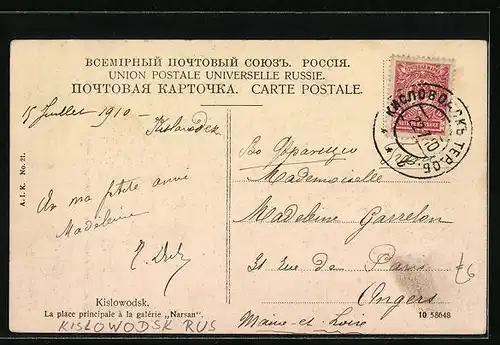 ВСЕМІРНЫЙ ПОЧТОВЫЙ СОЮЗЪ. РОССІЯ.
UNION POSTALE UNIVERSELLE RUSSIE.
ПОЧТОВАЯ КАРТОЧКА. CARTE POSTALE.
КИСЛОВОДСКЪ ТЕР. ОБ.
15 Juillet 1910 -
Kislovodsk
A. I. K. No. 21.
à ma petite amie
Madeleine
Во Францію
Mademoiselle
Madeleine Garrelon
31 rue de Paris
Angers
Maine-et-Loire
£6
Kislowodsk.
La place principale à la galérie „Narsan".
10 58648
KISLOWODSK RUS